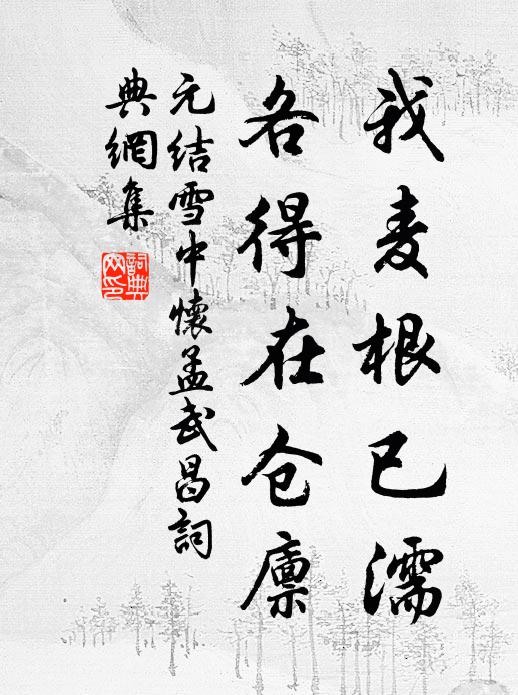 我麦根已濡
各得在仓廪
元结雪中懷孟武昌詞
典網集
詞典網印